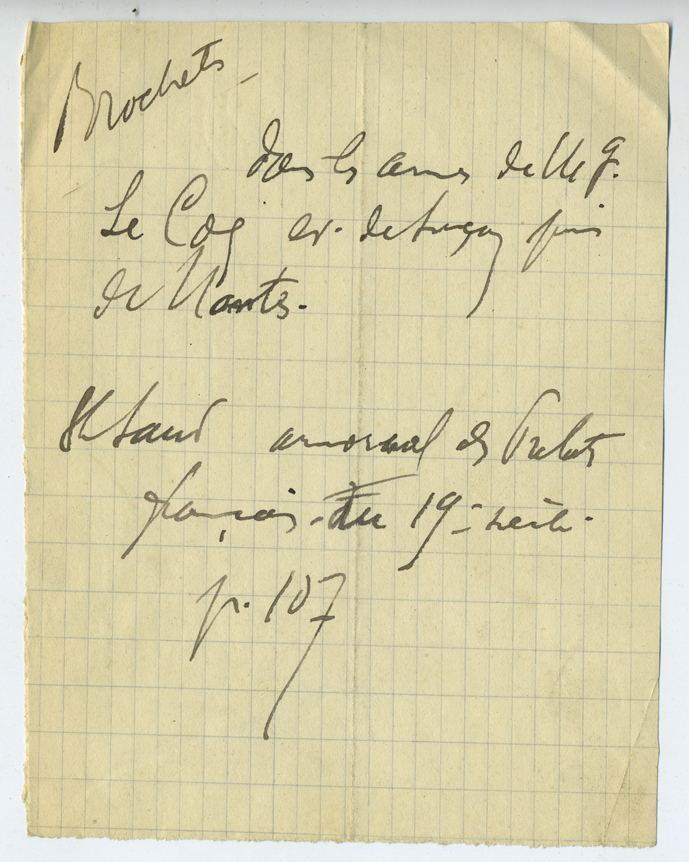 Brochets -
dans les armes de Mgr.
Le Coq ev. de Luçon puis
de Nantes.
St Saud armorial des Prelats
français du 19e siècle.
p. 107